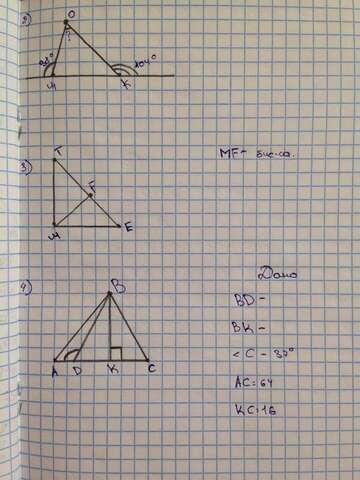 2)
O
?
104°
М
K
3)
T
MF - бис-са.
F
М
E
4)
Дано
B
BD -
BK -
< C - 37°
A D K C
AC = 64
KC = 16